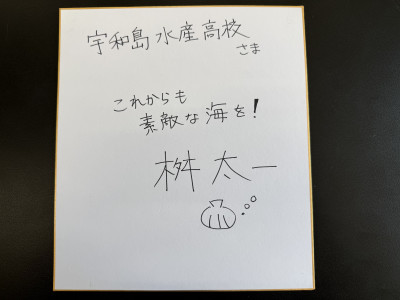 宇和島水産高校
さま
これからも
素敵な海を!
桝太一